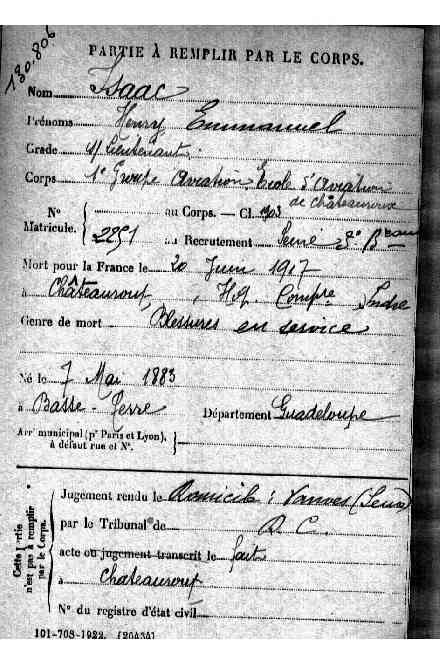 130.806
PARTIE À REMPLIR PAR LE CORPS.
Nom Isaac
Prénoms Henry Emmanuel
Grade s/ Lieutenant
Corps 1er Groupe Aviation Ecole d'Aviation
de Châteauroux
N° au Corps. — Cl. 1903
Matricule. 2251 au Recrutement Seine 3e Beau
Mort pour la France le 20 Juin 1917
à Châteauroux, Hop. Compre Indre
Genre de mort Blessures en service
Né le 7 Mai 1883
à Basse-Terre Département Guadeloupe
Arr' municipal (p' Paris et Lyon),
à défaut rue et N°.
Cette partie
n'est pas à remplir
par le Corps.
Jugement rendu le Domicile : Vanves (Seine)
par le Tribunal de D. C.
acte ou jugement transcrit le fait
à Chateauroux
N° du registre d'état civil
101-708-1922. [26434]